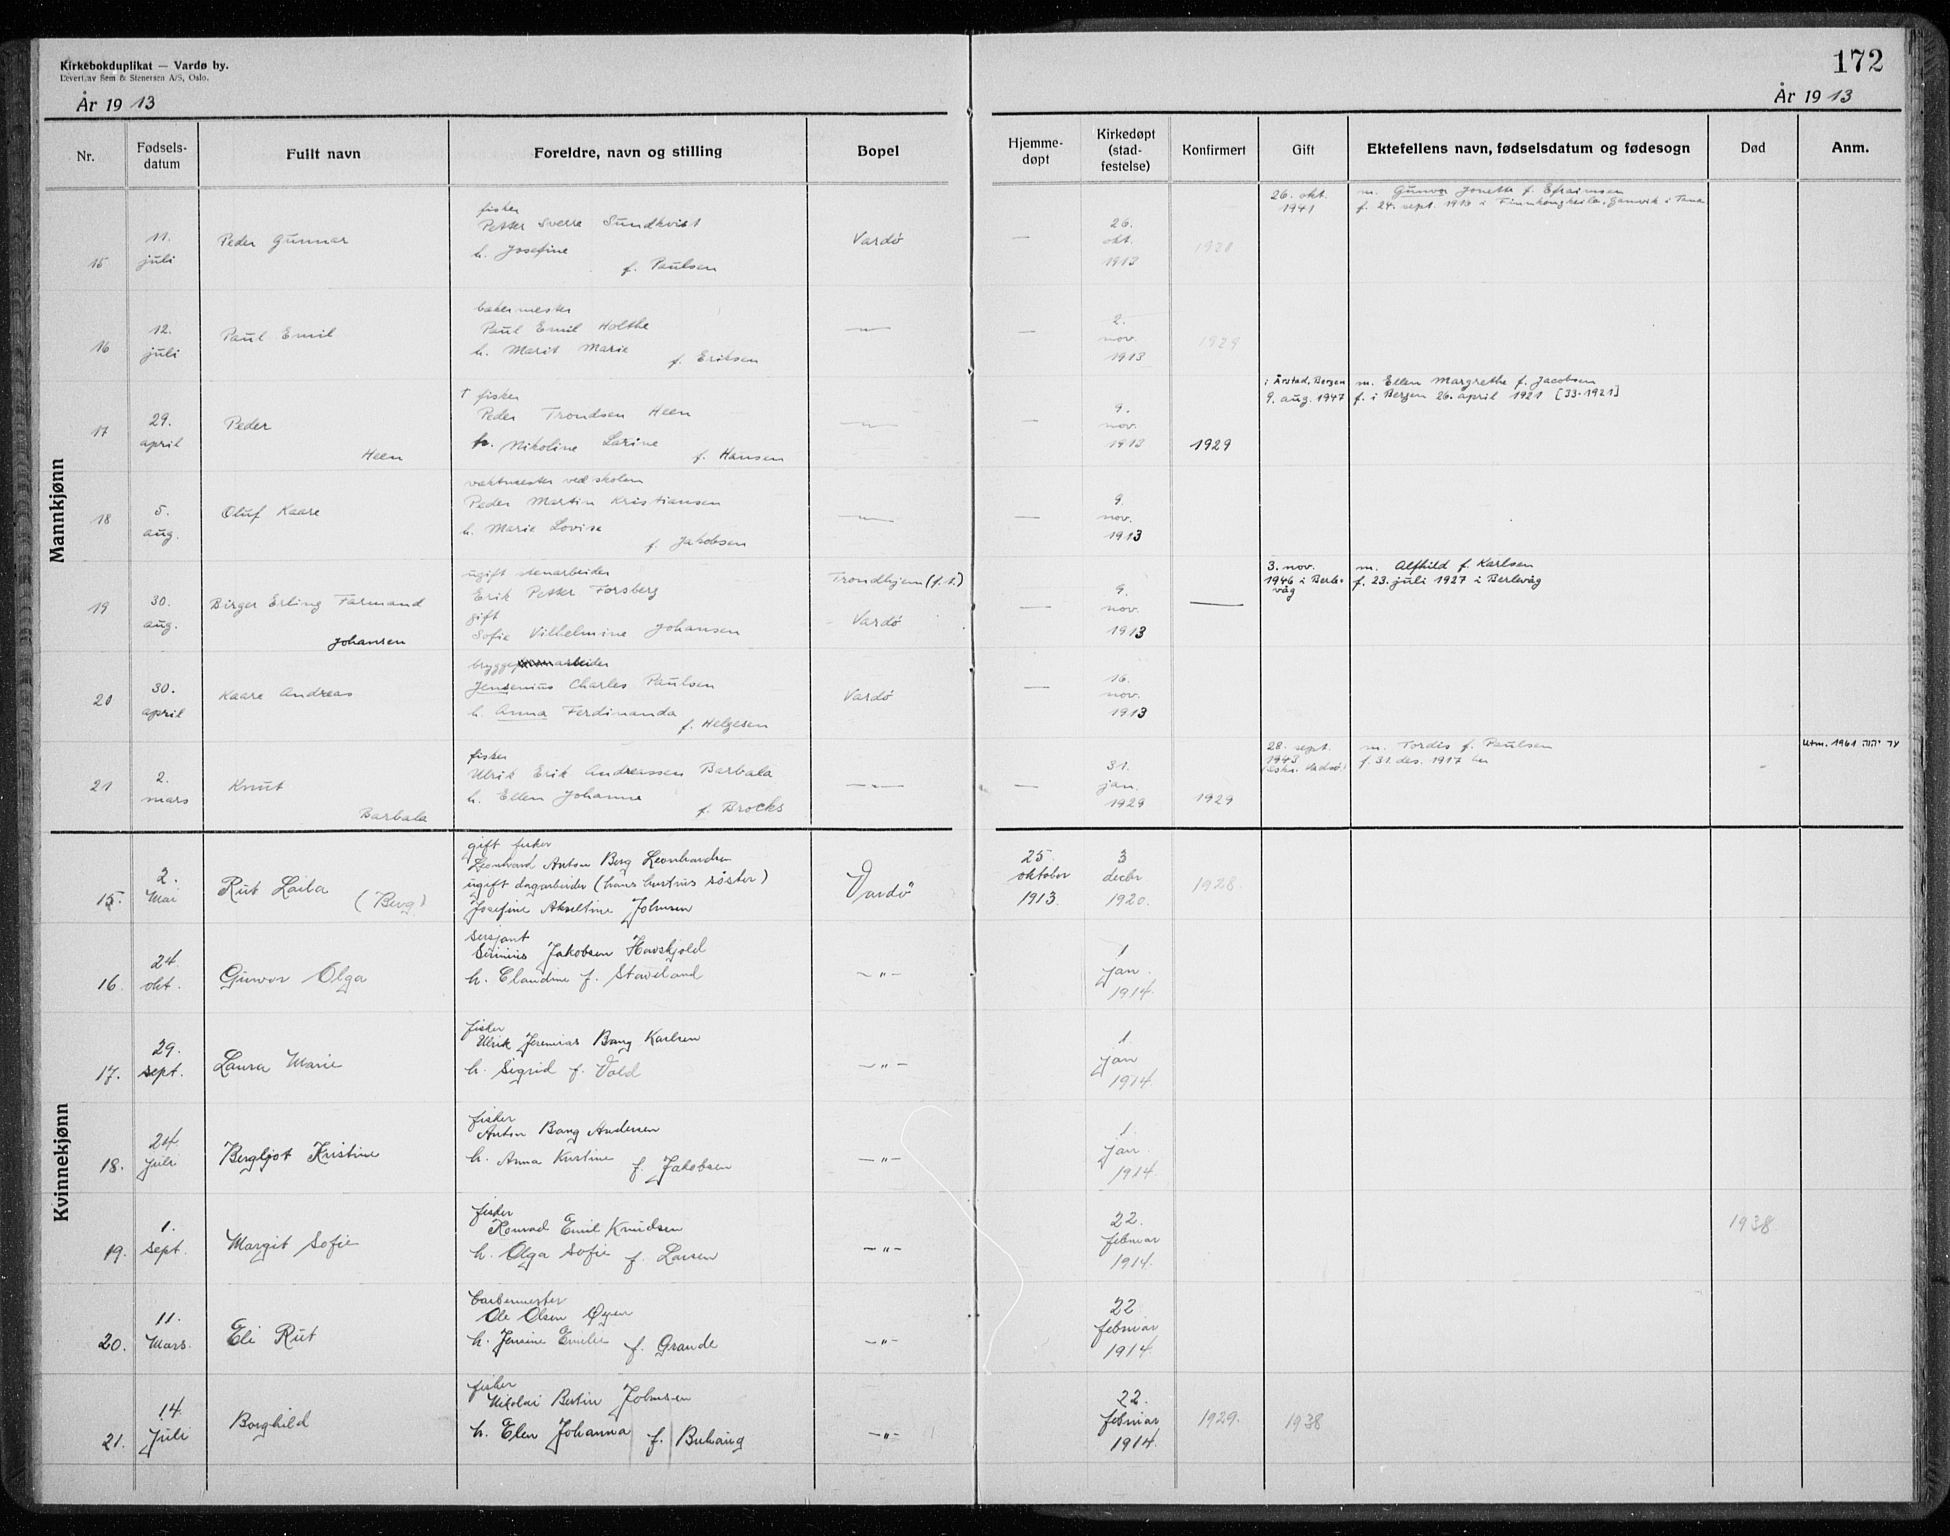 Kirkebokduplikat — Vardø by.
Levert av Sem & Stenersen A/S, Oslo.
172
År 1913
År 1913
Nr. Fødselsdatum Fullt navn Foreldre, navn og stilling Bopel Hjemmedøpt Kirkedøpt (stadfestelse) Konfirmert Gift Ektefellens navn, fødselsdatum og fødesogn Død Anm.
Mannkjønn
15 11. juli Peder Gunnar
fisker
Petter Sverre Sundkvist
h. Josefine
f. Paulsen
Vardø — 26. okt. 1913 1930
26. okt. 1941
m. Gunvor Jonette f. Efraimsen
f. 24. sept. 1916 i Finnkongkeila, Gamvik i Tana
16 12. juli Paul Emil
bakermester
Paul Emil Holthe
h. Marit Marie
f. Eriksen
—"— — 2. nov. 1913 1929
17 29. april Peder
Heen
† fisker
Peder Trondsen Heen
h. Nikoline Larine
f. Hansen
—"— — 9. nov. 1913 1929
i Årstad, Bergen
9. aug. 1947
m. Ellen Margrethe f. Jacobsen
f. i Bergen 26. april 1921 [33-1921]
18 5. aug. Oluf Kaare
vaktmester ved skolen
Peder Martin Kristiansen
h. Marie Lovise
f. Jakobsen
—"— — 9. nov. 1913
19 30. aug. Birger Erling Farmand
Johansen
ugift stenarbeider
Erik Petter Forsberg
gift
Sofie Vilhelmine Johansen
Trondhjem (f.t.)
Vardø
— 9. nov. 1913 —
3. nov.
1946 i Berlevåg
m. Alfhild f. Karlsen
f. 23. juli 1927 i Berlevåg
20 30. april Kaare Andreas
brygge arbeider
Jensenius Charles Paulsen
h. Anna Ferdinanda
f. Helgesen
Vardø — 16. nov. 1913
21 2. mars Knut
Barbala
fisker
Ulrik Erik Andreassen Barbala
h. Ellen Johanne
f. Brocks
—"— — 31. jan. 1929 1929
28. sept.
1943
Vadsø
m. Tordis f. Paulsen
f. 31. des. 1917 her
Utm. 1961 עד יהוה
Kvinnekjønn
15. 2. Mai Rut Laila
(Berg)
gift fisker
Leonhard Anton Berg Leonhardsen
ugift dagarbeider (hans hustrus søster)
Josefine Akseltine Johnsen
Vardø 25. oktober 1913. 3 decbr 1920. 1928.
16. 24. okt. Gunvor Olga
sersjant
Sirinius Jakobsen Havskjold
h. Claudine f. Staveland
—"— 1 jan. 1914.
17. 29. sept. Laura Marie
fisker
Ulrik Jeremias Bang Karlsen
h. Sigrid f. Vold
—"— 1. jan 1914.
18. 24. juli Bergljot Kristine
fisker
Anton Bang Andersen
h. Anna Kirstine f. Jakobsen
—"— 1. jan. 1914.
19. 1. sept. Margit Sofie
fisker
Konrad Emil Knudsen
h. Olga Sofie f. Larsen
—"— 22. februar 1914. 1938.
20. 11. Mars. Eli Rut
Garbermester
Ole Olsen Øyen
h. Jensine Emilie f. Grande
—"— 22 februar 1914.
21. 14. Juli Borghild
fisker
Nikolai Bertin Johnsen
h. Elen Johanna f. Buhaug
—"— 22. februar 1914. 1929. 1938